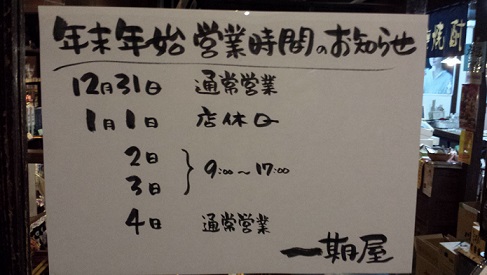 年末年始営業時間のお知らせ
12月31日 通常営業
1月1日 店休日
2日
3日 } 9:00〜17:00
4日 通常営業
一期屋
焼酎